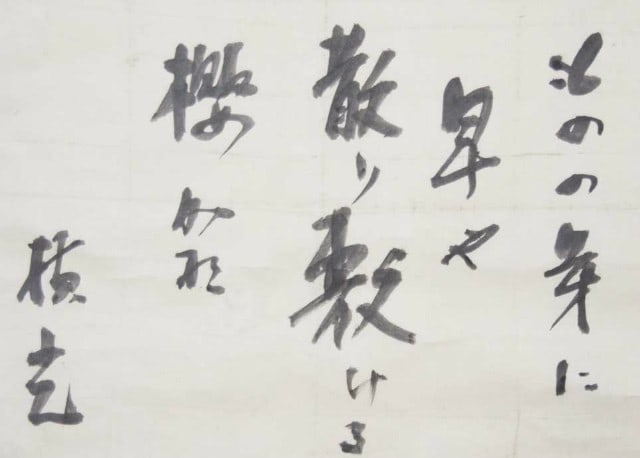 ものの芽に
早や
散り敷ける
櫻かな
横光